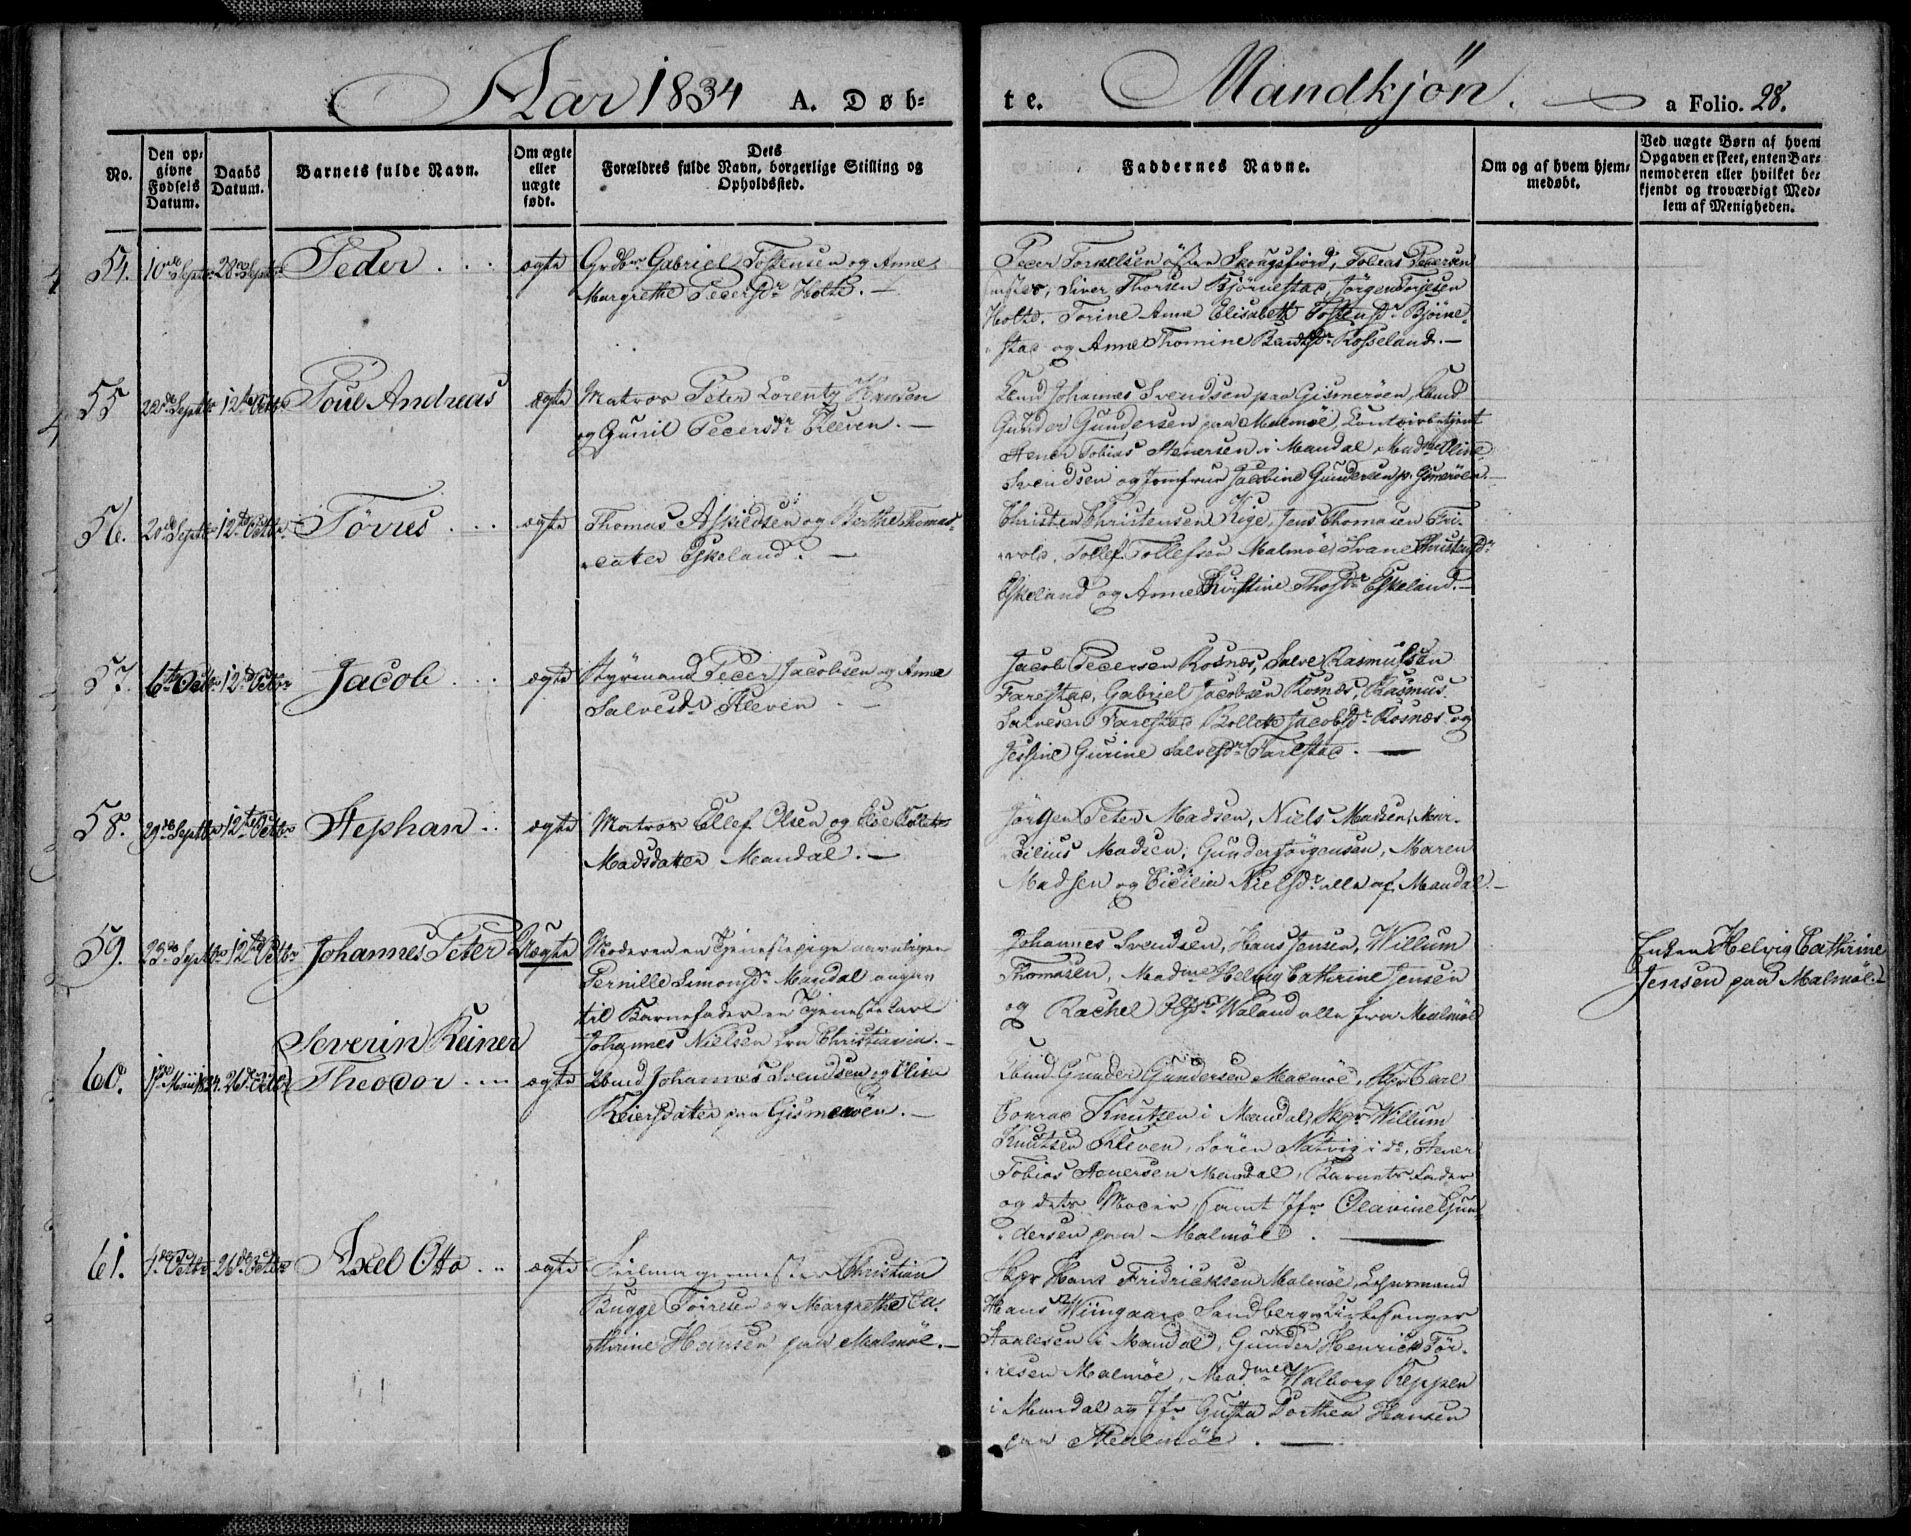 Aar 1834 A. Døb=
te. Mandkjön. a Folio. 28.
No.
Den op-
givne
Fødsels
Datum.
Daabs
Datum.
Barnets fulde Navn.
Om ægte
eller
uægte
født.
Dets
Forældres fulde Navn, borgerlige Stilling og
Opholdssted.
Faddernes Navne.
Om og af hvem hjem-
medøbt.
Ved uægte Børn af hvem
Opgaven er skeet, enten Bar-
nemoderen eller hvilket be-
kjendt og troværdigt Med-
lem af Menigheden.
54. 10de Septbr 28de Septbr Peder ægte Grdbr. Gabriel Tostensen og Anne
Margrethe Pedersdr Holte. —
Peder Torkelsen østre Skougsfiord, Tobias Pedersen
Siver Thorsen Björnestad, Jörgen Torjesen
Holte. Torine Anne Elisabeth Tostensdr Björne-
stad og Anne Thomine Bentsdr Rosseland. —
55 22de Septbr 12te Octbr Poul Andreas ægte Matros Peter Lorentz Hansen
og Gunil Pedersdr Kleven. —
Johannes Svendsen paa Gismeröen,
Gunder Gundersen paa Malmöe, Contoirbetjent
Stener Tobias Stenersen i Mandal, Madme Oline
Svendsen og Jomfrue Jacobine Gundersen p. Gismeröen. —
56. 20de Septbr 12te Octbr. Törres ægte Thomas Askildsen og Berthe Thomas-
datter Eskeland. —
Christen Christensen Kige, Jens Thomasen Tri-
vold, Tollef Tollefsen Malmöe, Svane Christensdr
Eskeland og Anne Christine Thosdr Eskeland. —
57. 6te Octbr 12te Octbr Jacob ægte Styrmand Peder Jacobsen og Anne
Salvesdr Kleven. —
Jacob Pedersen Rosnæs, Salve Rasmusen
Farestad, Gabriel Jacobsen Rosnæs, Rasmus
Salvesen Farestad, Bollete Jacobsdr Rosnæs og
Jesine Gurine Salvesdr Farestad. —
58. 29de Septbr 12te Octbr Stephan ægte Matros Ellef Olsen og
Madsdatter Mandal. —
Jörgen Peter Madsen, Niels Madsen, Mar-
Madsen, Gunder Jörgensen, Maren
Madsen og Cicilia Nielsdr alle af Mandal. —
59. 23de Septbr 12te Octbr Johannes Peter Uægte Moderen en Tjenestepige navnligen
Pernille Simonsdr Mandal angav
til Barnefader en Tjenestekarl
Johannes Nielsen fra Christiania. —
Johannes Svendsen, Hans Jensen, Willum
Thomasen, Madme Helvig Cathrine Jensen
og Rachel Waland alle fra Malmöe
Enken Helvig Cathrine
Jensen paa Malmöe. —
Severin Reiner
60. 1834. 26de Octbr Theodor ægte Johannes Svendsen og Oline
Reiersdatter paa Gismeröen. —
Gunder Gundersen Malmöe, Skpr Carl
Conrad Knutzen i Mandal, Skpr Willum
Knutzen Kleven, Sören Natvig i do, Stener
Tobias Stenersen Mandal, Barnets Fader
og dets Moder, samt Jfr Olavine Gun-
dersen paa Malmöe. —
61. 4de Octbr 26de Octbr Axel Otto ægte Seilmagermester Christian
Bugge Törresen og Margrethe Ca-
thrine Hansen paa Malmöe. —
Skpr Hans Fridricksen Malmöe, Lehnsmand
Hans Wiingaard Sandberg, Kirkesanger
Staalesen i Mandal, Gunder Henrich Tör-
resen Malmöe, Madme Walborg Reppen
i Mandal og Jfr Gusta Dorthea Hansen
paa Malmöe. —